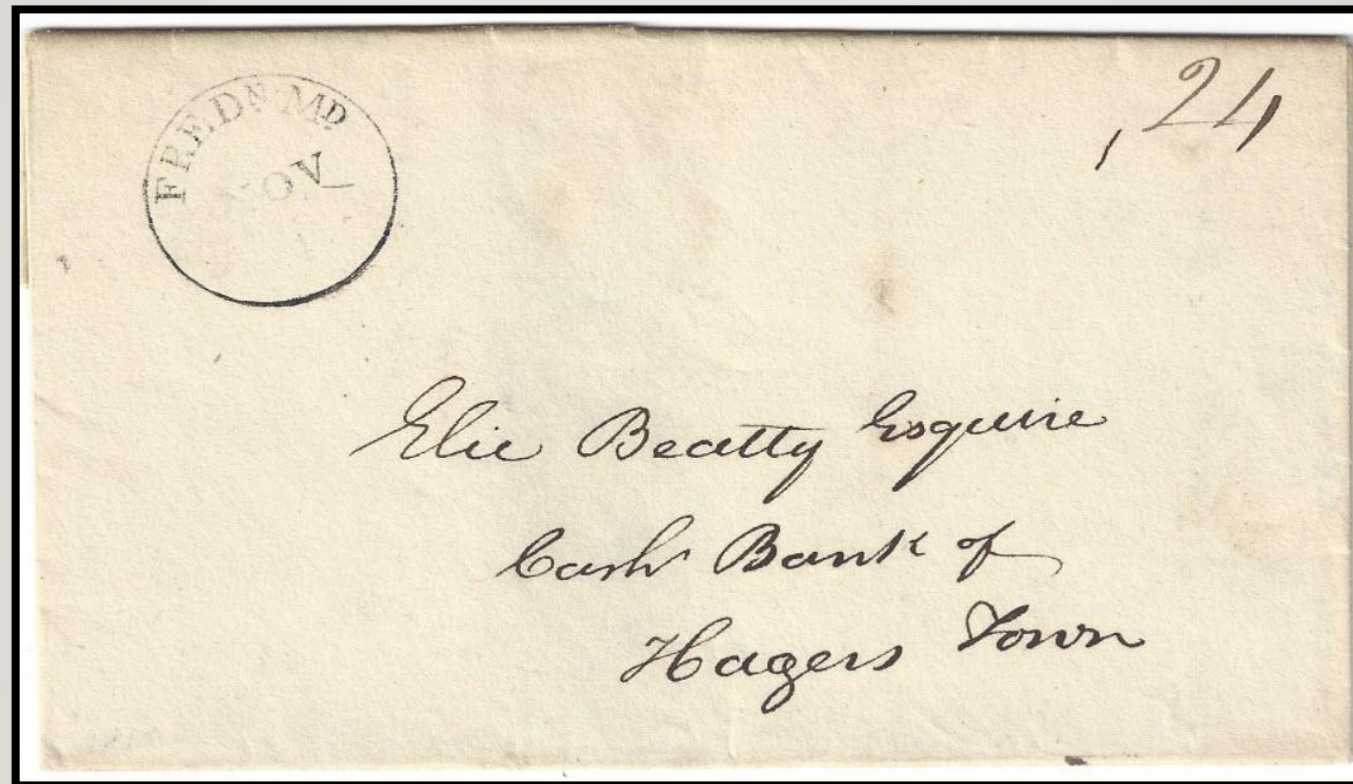 FREDK MD
NOV
24
Elie Beatty Esquire
Cashr Bank of
Hagers Town